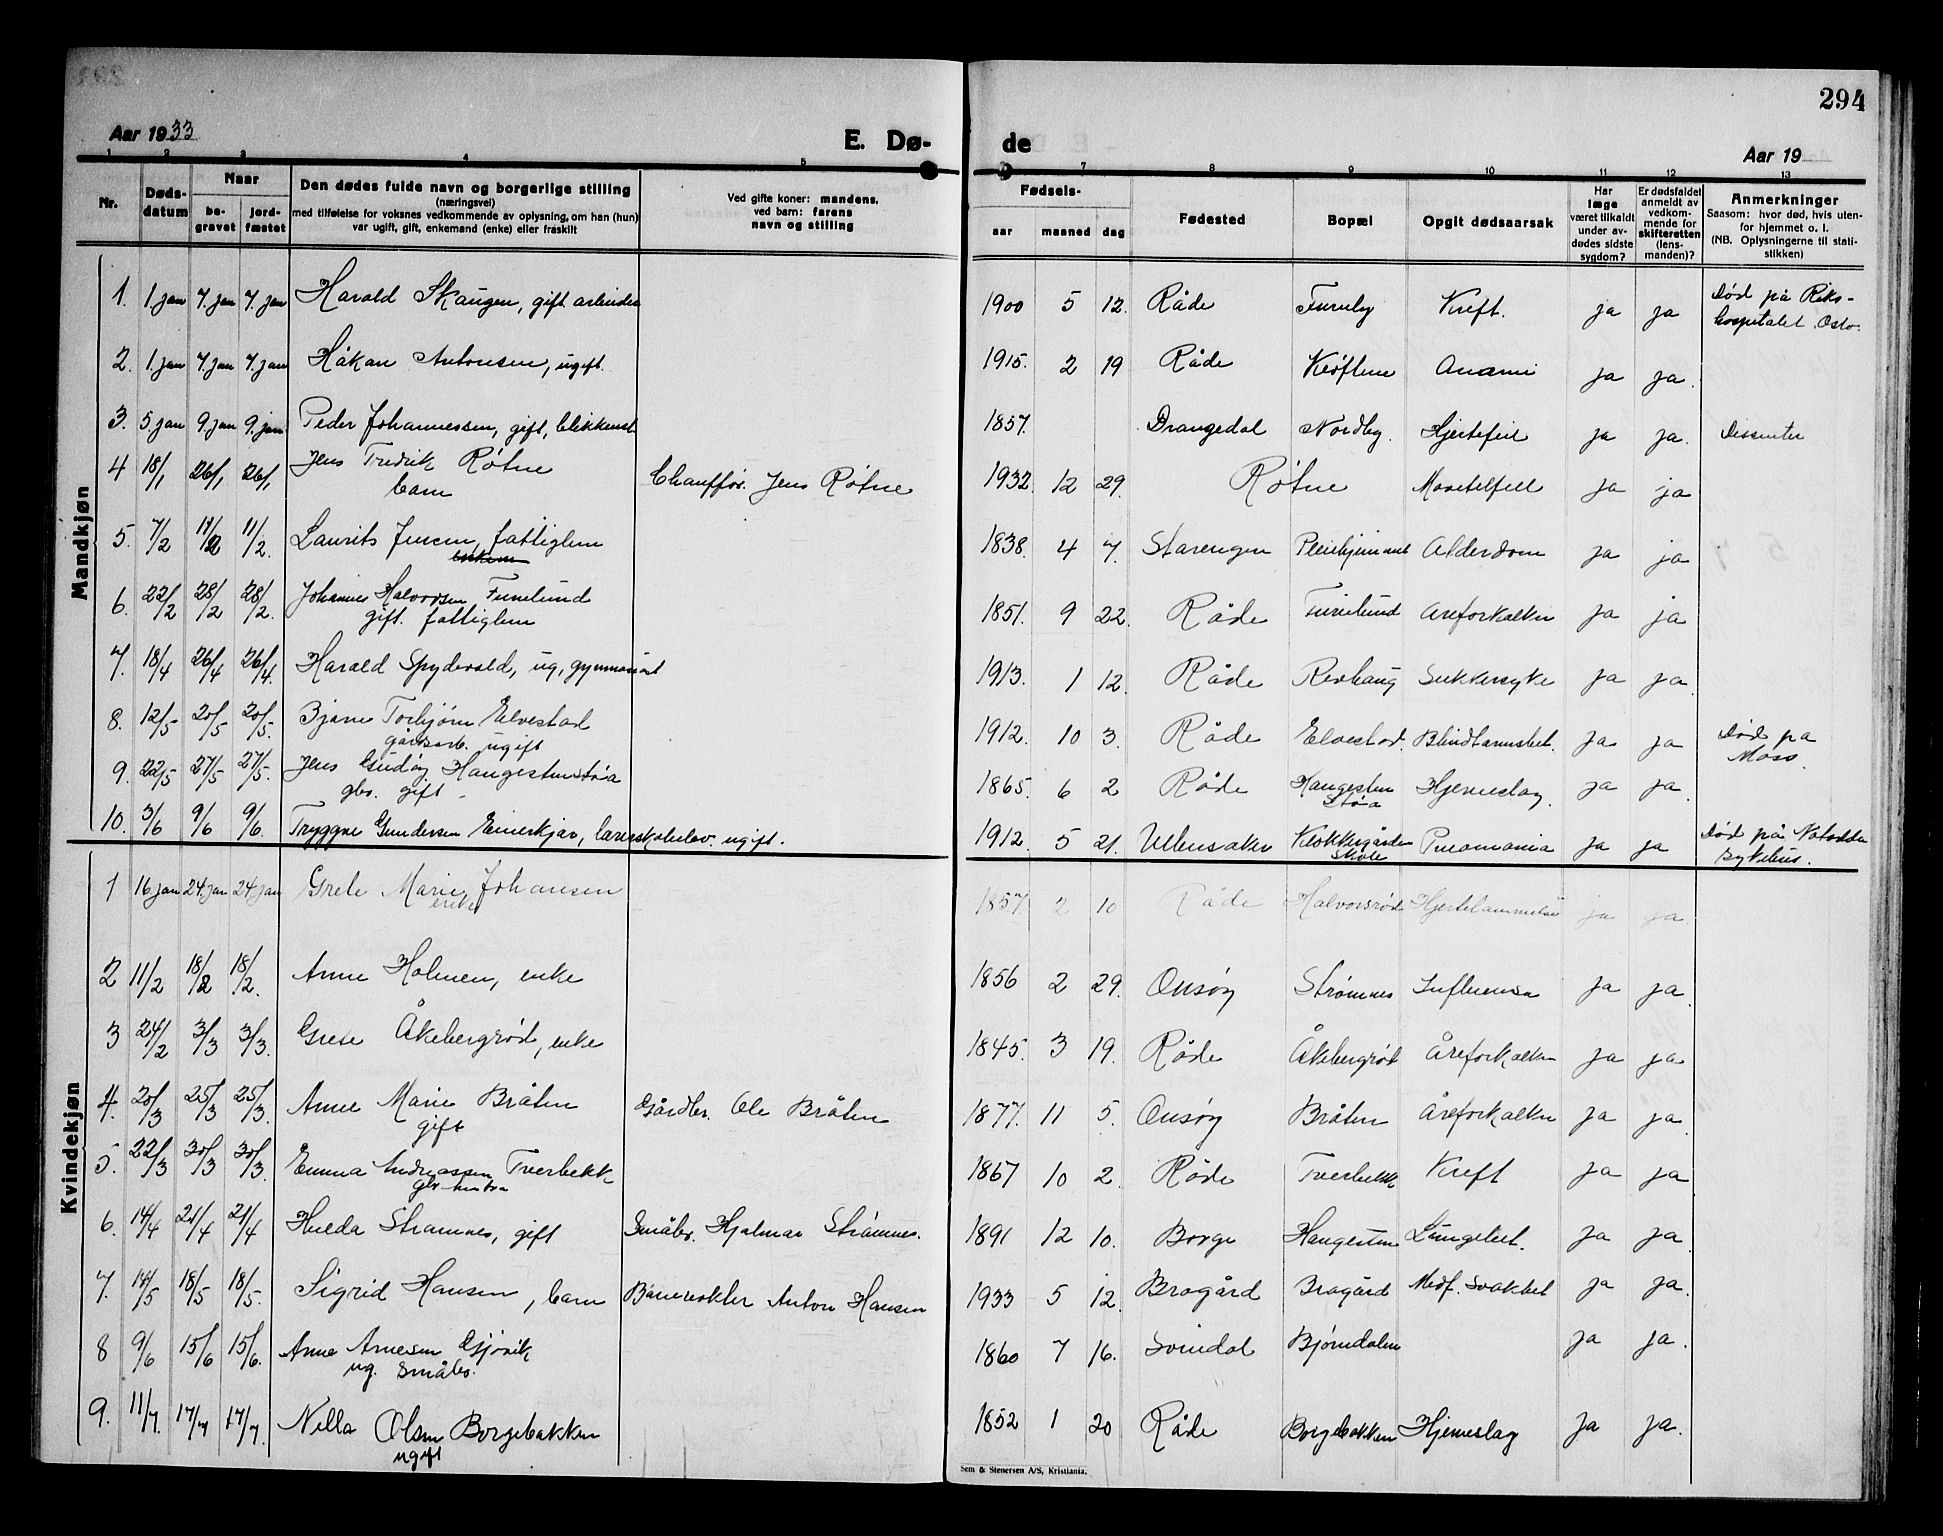 294
Aar 1933
E. Dø-
de
Aar 19
1 2 3 4 5 7 8 9 10 11 12 13
Nr.
Døds-
datum
Naar
be-
gravet
jord-
fæstet
Den dødes fulde navn og borgerlige stilling
(næringsvei)
med tilføielse for voksnes vedkommende av oplysning, om han (hun)
var ugift, gift, enkemand (enke) eller fraskilt
Ved gifte koner: mandens,
ved barn: farens
navn og stilling
Fødsels-
aar maaned dag
Fødested
Bopæl
Opgit dødsaarsak
Har
læge
været tilkaldt
under av-
dødes sidste
sygdom?
Er dødsfaldet
anmeldt av
vedkom-
mende for
skifteretten
(lens-
manden)?
Anmerkninger
Saasom: hvor død, hvis uten-
for hjemmet o. l.
(NB. Oplysningerne til stati-
stikken)
Mandkjøn
1. 1. jan 7. jan 7. jan Harald Skaugen, gift arbeider 1900 5 12. Råde Furuly Kreft. ja ja Død på Riks-
hospitalet Oslo.
2. 1. jan 7. jan 7. jan Håkan Antonsen, ugift. 1915. 2 19 Råde Kløftene Anæmi ja ja.
3. 5. jan 9. jan 9. jan Peder Johannessen, gift, blikkensl 1857. Drangedal Nordby. Hjertefeil ja ja. Dissenter
4 18/1 26/1 26/1 Jens Fredrik Røtne
barn Chauffør. Jens Røtne 1932. 12 29. Røtne ja ja
5. 7/2 11/2 11/2. Laurits Jensen, fattiglem
1838. 4 7. Starengen Pleiehjemmet Alderdom ja ja
6. 22/2 28/2 28/2. Johannes Halvorsen Furulund
gift. fattiglem 1851. 9 22. Råde Furulund Åreforkalkn ja ja
7. 18/4 26/4 26/4. Harald Spydevold, ug, gymnasiast 1913. 1 12. Råde Revhaug Sukkersyke ja ja.
8. 12/5 20/5 20/5. Bjarne Torbjørn Elvestad
gårdsarb. ugift 1912. 10 3. Råde Elvestad. Blindtarmsbet. ja ja Død på
Moss.
9. 22/5 27/5 27/5. Jens Gudøy Haugestenstøa
gbr. gift 1865. 6 2 Råde Haugesten
støa Hjerneslag. ja ja
10. 3/6 9/6 9/6. Tryggve Gundersen Einerkjær, lærerskoleelev. ugift. 1912. 5 21. Ullensaker Klokkergården
Skole Pneomonia ja ja Død på Notodden
sykehus.
Kvindekjøn
1 16 jan 24. jan 24. jan Grete Marie Johansen
enke 1857. 2 10 Råde Halvorsrød Hjertelammelse ja ja
2 11/2 18/2 18/2. Anne Holmen, enke 1856 2 29. Onsøy Strømnes Influensa ja ja.
3 24/2 3/3 3/3. Grete Åkebergrød, enke 1845. 3 19. Råde Åkebergrød Åreforkalkn ja ja
4. 20/3 25/3 25/3. Anne Marie Bråten
gift Gårdbr. Ole Bråten 1877. 11 5. Onsøy Bråten Åreforkalkn ja ja.
5. 22/3 30/3 30/3. Emma Andreassen Tverbekk
gbr-hustru 1867 10 2. Råde Tverbekk Kreft ja ja
6. 14/4 21/4 21/4 Hulda Strømnes, gift Småbr. Hjalmar Strømnes. 1891 12 10. Borge Haugesten Lungebet. ja ja.
7. 14/5 18/5 18/5. Sigrid Hansen, barn Banevokter Anton Hansen 1933 5 12. Brogård Brogård Medf. svakhet ja ja.
8 9/6 15/6 15/6. Anne Arnesen Gjøvik
ug. småbr. 1860 7 16. Svindal Bjørndalen ja ja.
9. 11/7. 17/7 17/7. Nilla Olsen Borgebakken
ugift 1852 1 20 Råde Borgebakken Hjerneslag ja ja.
Sem & Stenersen A/S, Kristiania.